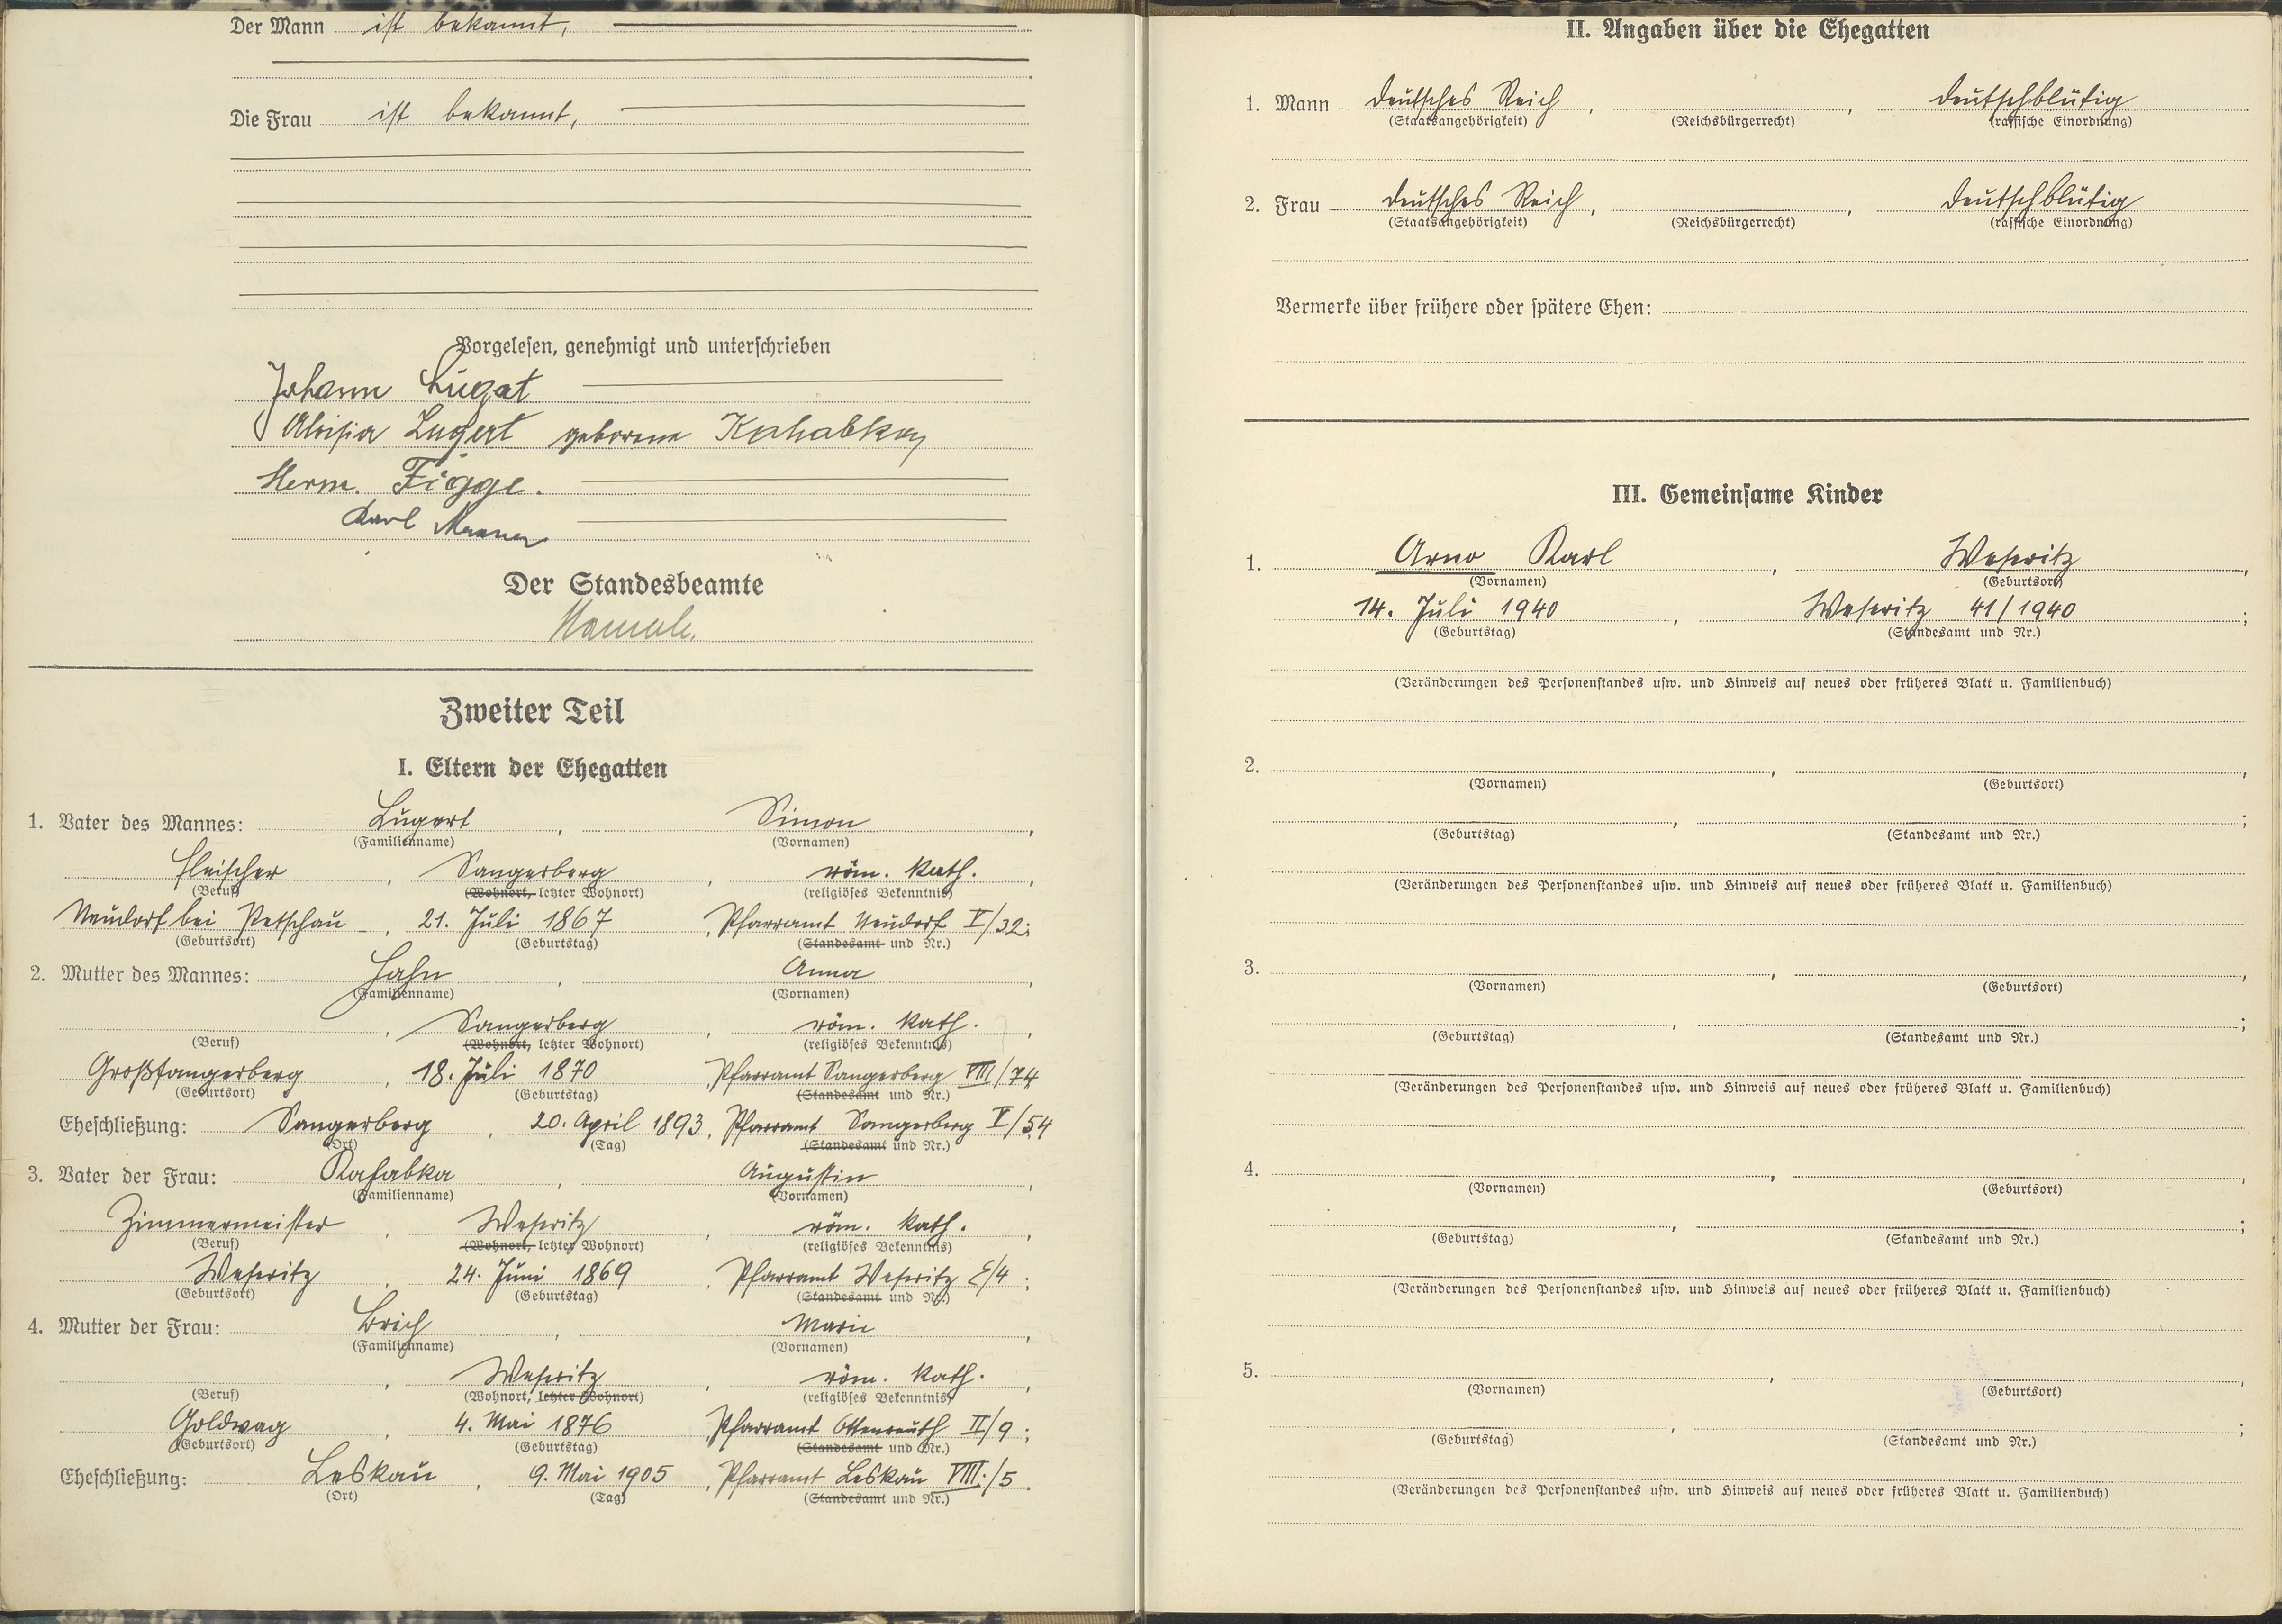 Der Mann ist bekannt,
Die Frau ist bekannt,
Vorgelesen, genehmigt und unterschrieben
Johann Lugat
Aloisia Lugert geborene
Herm. Figge.
Karl
Der Standesbeamte
Zweiter Teil
I. Eltern der Ehegatten
1. Vater des Mannes: Lugert, Simon,
(Familienname) (Vornamen)
Fleischer, Sangerberg, röm. kath.,
(Beruf) (Wohnort, letzter Wohnort) (religiöses Bekenntnis)
Neudorf bei Petschau, 21. Juli 1867, Pfarramt Neudorf V/32;
(Geburtsort) (Geburtstag) (Standesamt und Nr.)
2. Mutter des Mannes: Hahn, Anna,
(Familienname) (Vornamen)
, Sangerberg, röm. kath.,
(Beruf) (Wohnort, letzter Wohnort) (religiöses Bekenntnis)
Großsangerberg, 18. Juli 1870 Pfarramt Sangerberg VIII/74
(Geburtsort) (Geburtstag) (Standesamt und Nr.)
Eheschließung: Sangerberg, 20. April 1893, Pfarramt Sangerberg V/54
(Ort) (Tag) (Standesamt und Nr.)
3. Vater der Frau: Kahabka, Augustin,
(Familienname) (Vornamen)
Zimmermeister, Weseritz, röm. kath.,
(Beruf) (Wohnort, letzter Wohnort) (religiöses Bekenntnis)
Weseritz, 24. Juni 1869, Pfarramt Weseritz E/4;
(Geburtsort) (Geburtstag) (Standesamt und Nr.)
4. Mutter der Frau: Brich, Marie,
(Familienname) (Vornamen)
, Weseritz, röm. kath.,
(Beruf) (Wohnort, letzter Wohnort) (religiöses Bekenntnis)
Goldwag, 4. Mai 1876, Pfarramt Ottenreuth II/9;
(Geburtsort) (Geburtstag) (Standesamt und Nr.)
Eheschließung: Leskau, 9. Mai 1905, Pfarramt Leskau VIII./5.
(Ort) (Tag) (Standesamt und Nr.)
II. Angaben über die Ehegatten
1. Mann Deutsches Reich, , deutschblütig
(Staatsangehörigkeit) (Reichsbürgerrecht) (rassische Einordnung)
2. Frau Deutsches Reich, , deutschblütig
(Staatsangehörigkeit) (Reichsbürgerrecht) (rassische Einordnung)
Vermerke über frühere oder spätere Ehen:
III. Gemeinsame Kinder
1. Arno Karl, Weseritz,
(Vornamen) (Geburtsort)
14. Juli 1940, Weseritz 41/1940;
(Geburtstag) (Standesamt und Nr.)
(Veränderungen des Personenstandes usw. und Hinweis auf neues oder früheres Blatt u. Familienbuch)
2. , ,
(Vornamen) (Geburtsort)
, ;
(Geburtstag) (Standesamt und Nr.)
(Veränderungen des Personenstandes usw. und Hinweis auf neues oder früheres Blatt u. Familienbuch)
3. , ,
(Vornamen) (Geburtsort)
, ;
(Geburtstag) (Standesamt und Nr.)
(Veränderungen des Personenstandes usw. und Hinweis auf neues oder früheres Blatt u. Familienbuch)
4. , ,
(Vornamen) (Geburtsort)
, ;
(Geburtstag) (Standesamt und Nr.)
(Veränderungen des Personenstandes usw. und Hinweis auf neues oder früheres Blatt u. Familienbuch)
5. , ,
(Vornamen) (Geburtsort)
, ;
(Geburtstag) (Standesamt und Nr.)
(Veränderungen des Personenstandes usw. und Hinweis auf neues oder früheres Blatt u. Familienbuch)